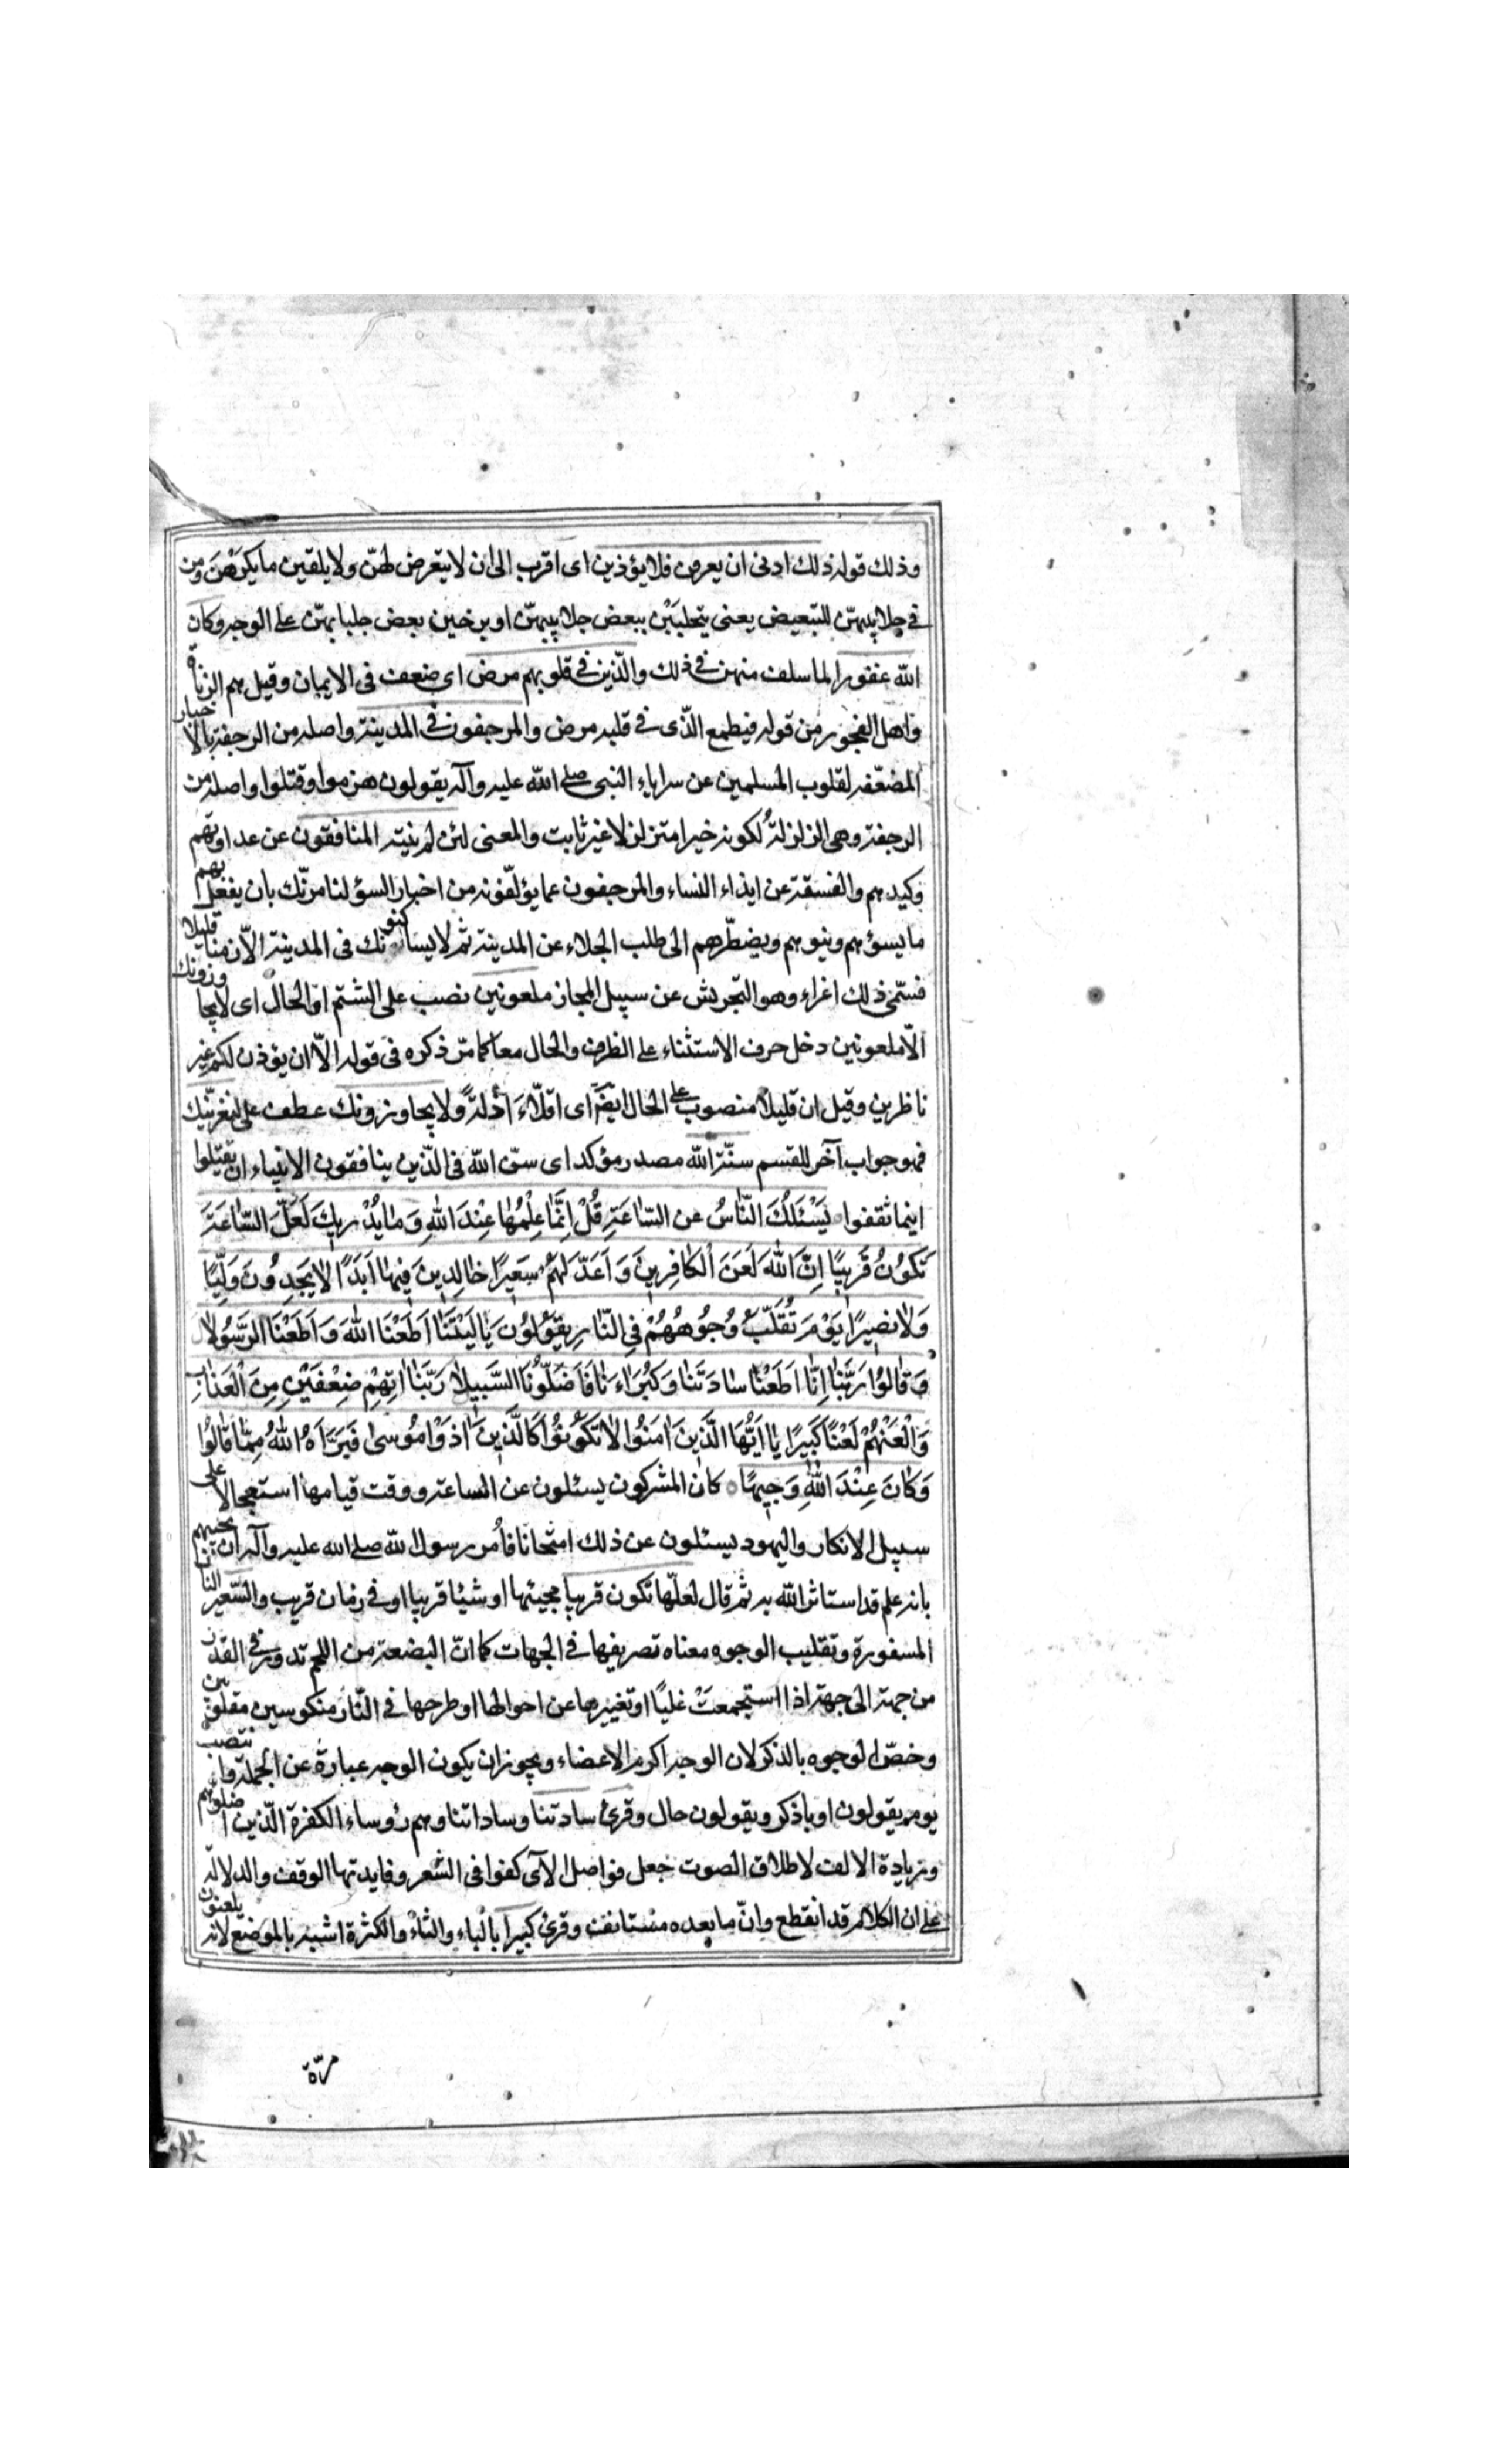 وذلك قوله ذلك ادنى ان يعرفن فلا يؤذين اى اقرب الى ان لا يتعرض لهنّ ولا يلقين ما يكرهن ومن
فى جلابيبهنّ للتبعيض يعنى يتجلببن ببعض جلابيبهنّ او يرخين بعض جلبابهنّ على الوجه وكان
الله غفورا لما سلف منهن فى ذلك والّذين فى قلوبهم مرض اى ضعف فى الايمان وقيل هم الزناة
واهل الفجور من قوله فيطمع الّذى فى قلبه مرض والمرجفون فى المدينة واصله من الرجفة بالاخبار
المضعّفه لقلوب المسلمين عن سراياء النبى صلى الله عليه وآله يقولون هزموا وقتلوا واصله من
الرجفة وهى الزلزلة لكونه خبرا متزلزلا غير ثابت والمعنى لئن لم ينته المنافقون عن عداوتهم
وكيدهم والفسقة عن ايذاء النساء والمرجفون عما يؤلّفونه من اخبار السؤ لنامرنّك بان يفعل بهم
ما يسؤهم وينوبهم ويضطّرهم الى طلب الجلاء عن المدينة ثم لا يساكنونك فى المدينة الاّ زمنا قليلا
فسمّى ذلك اغراء وهو التحريش عن سبيل المجاز ملعونين نصب على الشتم او الحال اى لا يجاورونك
الاّ ملعونين دخل حرف الاستثناء على الظرف والحال معا كما مرّ ذكره فى قوله الاّ ان يؤذن لكم غير
ناظرين وقيل ان قليلا منصوب على الحال ايضا اى اقلّاء اذلة ولا يجاورونك عطف على لنغرينّك
فهو جواب آخر للقسم سنّة الله مصدر مؤكد اى سنّ الله فى الّذين ينافقون الانبياء ان يقتلوا
اينما ثقفوا يَسْئَلُكَ النّاسُ عن السّاعَةِ قُلْ اِنَّمٰا عِلْمُهٰا عِنْدَ اللهِ وَمٰا يُدْريكَ لَعَلَّ السّاعَةَ
تَكُونُ قَريبًا اِنَّ اللهَ لَعَنَ الْكافِرينَ وَاَعَدَّ لَهُمْ سَعيرًا خٰالِدينَ فيهٰا اَبَدًا لاٰ يَجِدُونَ وَلِيًّا
وَلاٰ نَصيرًا يَوْمَ تُقَلَّبُ وُجُوهُهُمْ فِى النّارِ يَقُولُونَ يٰا لَيْتَنٰا اَطَعْنَا اللهَ وَاَطَعْنَا الرَّسُولاٰ
وَقٰالُوا رَبَّنٰا اِنّٰا اَطَعْنٰا سٰادَتَنٰا وَكُبَرٰاءَنٰا فَاَضَلُّونَا السَّبيلاٰ رَبَّنٰا اٰتِهِمْ ضِعْفَيْنِ مِنَ الْعَذٰابِ
وَالْعَنْهُمْ لَعْنًا كَبيرًا يٰا اَيُّهَا الَّذينَ اٰمَنُوا لاٰ تَكُونُوا كَالَّذينَ اٰذَوْا مُوسٰى فَبَرَّاَهُ اللهُ مِمّٰا قٰالُوا
وَكٰانَ عِنْدَ اللهِ وَجيهًا كان المشركون يسئلون عن الساعة ووقت قيامها استعجالا على
سبيل الانكار واليهود يسئلون عن ذلك امتحانا فأمر رسول الله صلى الله عليه وآله ان يجيبهم
بانه علم قد استاثر الله به ثم قال لعلّها تكون قريبا مجيئها او شيئا قريبا او فى زمان قريب والسّعير النار
المسفورة وتقليب الوجوه معناه تصريفها فى الجهات كما انّ البضعة من اللحم تدور فى القدر
من جهة الى جهة اذا استجمعت غليًا او تغييرها عن احوالها او طرحها فى النّار منكوسين مقلوبين
وخصّ الوجوه بالذكر لان الوجه اكرم الاعضاء ويجوز ان يكون الوجه عبارة عن الجملة وانتصب
يوم بيقولون او باذكر ويقولون حال وقرئ سادتنا وساداتنا وهم رؤساء الكفرة الّذين اضلوهم
وزيادة الالف لاطلاق الصوت جعل فواصل الآى كقوافى الشعر وفايدتها الوقف والدلالة
على ان الكلام قد انقطع وانّ ما بعده مستانف وقرئ كبيرا بالباء والثاء والكثرة اشبه بالموضع لانه يلعنون
مرّة